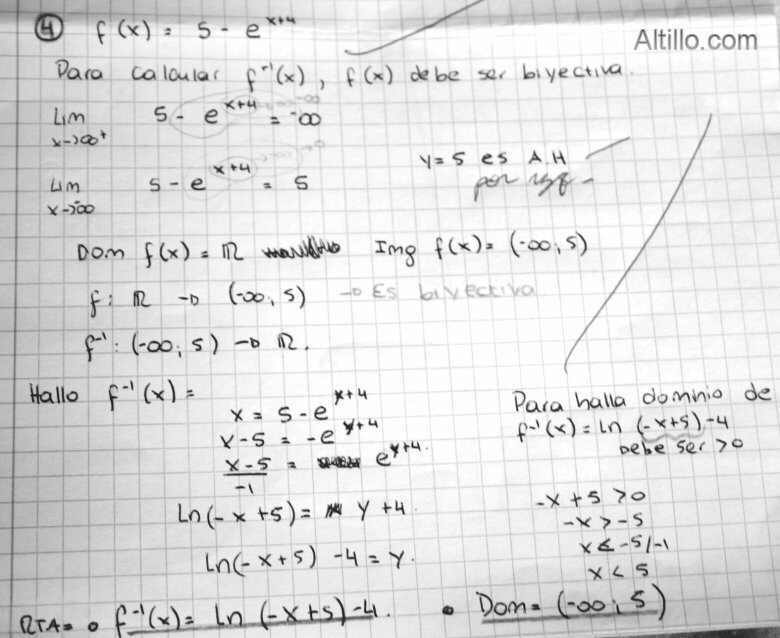 ④ f(x) = 5 - e^{x+4}
Altillo.com
Para calcular f⁻¹(x), f(x) debe ser biyectiva.
Lim x→∞⁺ 5 - e^{x+4} = -∞
Lim x→-∞ 5 - e^{x+4} = 5
y = 5 es A.H
por izq -
Dom f(x) = ℝ Img f(x) = (-∞; 5)
f: ℝ → (-∞; 5) → Es biyectiva
f⁻¹: (-∞; 5) → ℝ.
Hallo f⁻¹(x) =
x = 5 - e^{x+4}
x - 5 = -e^{y+4}
x-5/-1 = e^{y+4}.
Ln(-x+5) = y + 4
Ln(-x+5) - 4 = y.
Para halla dominio de
f⁻¹(x) = Ln (-x+5) - 4
Debe ser > 0
-x + 5 > 0
-x > -5
x < -5/-1
x < 5
RTA = • f⁻¹(x) = Ln (-x+5) - 4. • Dom = (-∞; 5)